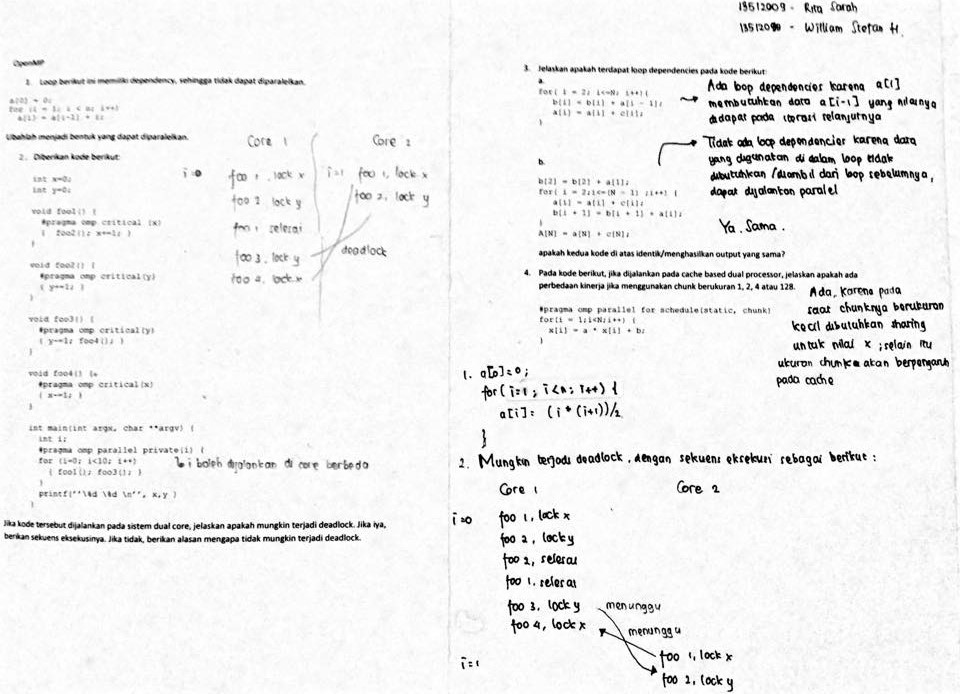 13512009 - Rita Sarah
- William Stefan H.
OpenMP
1. Loop berikut ini memiliki dependency, sehingga tidak dapat diparalelkan.
a[0] = 0;
for (i = 1; i < n; i++)
a[i] = a[i-1] + i;
Ubahlah menjadi bentuk yang dapat diparalelkan.
2. Diberikan kode berikut:
int x=0;
int y=0;
void foo1() {
#pragma omp critical (x)
{ foo2(); x+=1; }
}
void foo2() {
#pragma omp critical(y)
{ y+=1; }
}
void foo3() {
#pragma omp critical(y)
{ y-=1; foo4(); }
}
void foo4() {
#pragma omp critical(x)
{ x-=1; }
}
int main(int argx, char **argv) {
int i;
#pragma omp parallel private(i) {
for (i=0; i<10; i++)
{ foo1(); foo3(); }
}
printf(''\%d \%d \n'', x,y )
}
i boleh dijalankan di core berbeda
Jika kode tersebut dijalankan pada sistem dual core, jelaskan apakah mungkin terjadi deadlock. Jika iya,
berikan sekuens eksekusinya. Jika tidak, berikan alasan mengapa tidak mungkin terjadi deadlock.
Core 1 Core 2
i=0 foo 1, lock x i=1 foo 1, lock x
foo 2 lock y foo 2, lock y
foo 1 selesai
foo 3, lock y deadlock
foo 4, lock x
3. Jelaskan apakah terdapat loop dependencies pada kode berikut:
a.
for( i = 2; i<=N; i++){
b[i] = b[i] + a[i - 1];
a[i] = a[i] + c[i];
}
Ada loop dependencies karena a[i]
membutuhkan data a[i-1] yang nilainya
didapat pada iterasi selanjutnya
b.
b[2] = b[2] + a[1];
for( i = 2;i<=(N - 1) ;i++) {
a[i] = a[i] + c[i];
b[i + 1] = b[i + 1] + a[i];
}
A[N] = a[N] + c[N];
Tidak ada loop dependencies karena data
yang digunakan di dalam loop tidak
dibutuhkan / diambil dari loop sebelumnya,
dapat dijalankan paralel
Ya. Sama.
apakah kedua kode di atas identik/menghasilkan output yang sama?
4. Pada kode berikut, jika dijalankan pada cache based dual processor, jelaskan apakah ada
perbedaan kinerja jika menggunakan chunk berukuran 1, 2, 4 atau 128.
#pragma omp parallel for schedule(static, chunk)
for(i = 1;i<N;i++) {
x[i] = a * x[i] + b;
}
Ada, karena pada
saat chunknya berukuran
kecil dibutuhkan sharing
untuk nilai x ; selain itu
ukuran chunk akan berpengaruh
pada cache
1. a[0]=0;
for(i=1; i<n; i++) {
a[i]= (i*(i+1))/2
}
2. Mungkin terjadi deadlock, dengan sekuens eksekusi sebagai berikut :
Core 1 Core 2
i=0 foo 1, lock x
foo 2, lock y
foo 2, selesai
foo 1, selesai
foo 3, lock y menunggu
foo 4, lock x menunggu
i=1 foo 1, lock x
foo 2, lock y